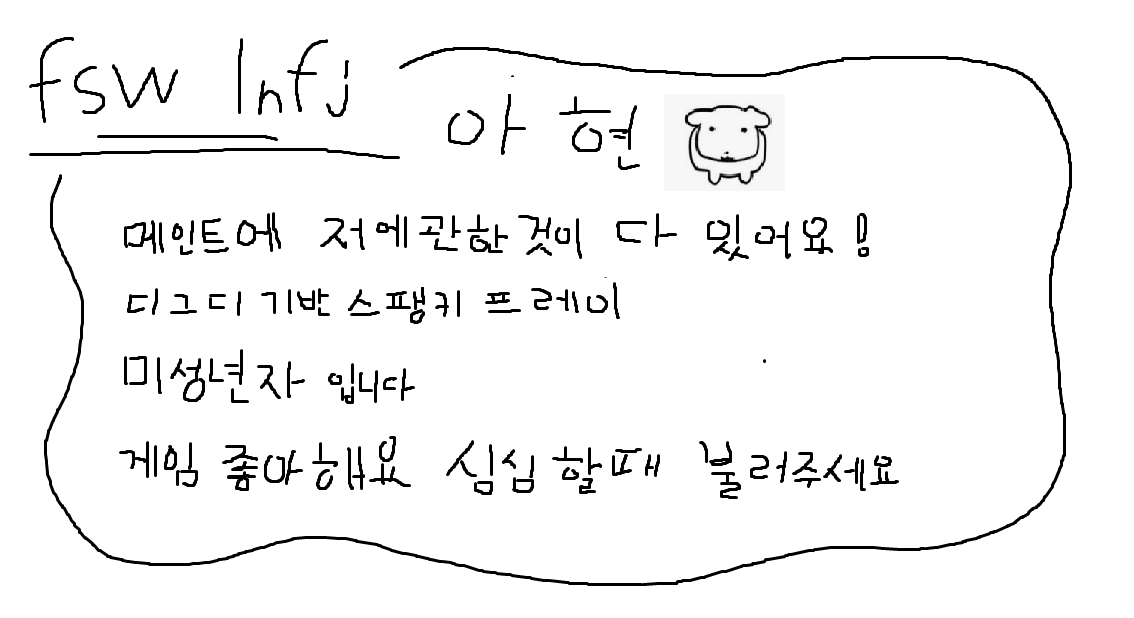 fsw Infj
아현
메인트에 저에관한것이 다 있어요!
디그디 기반 스팽키 프레이
미성년자 입니다
게임 좋아해요 심심할때 불러주세요